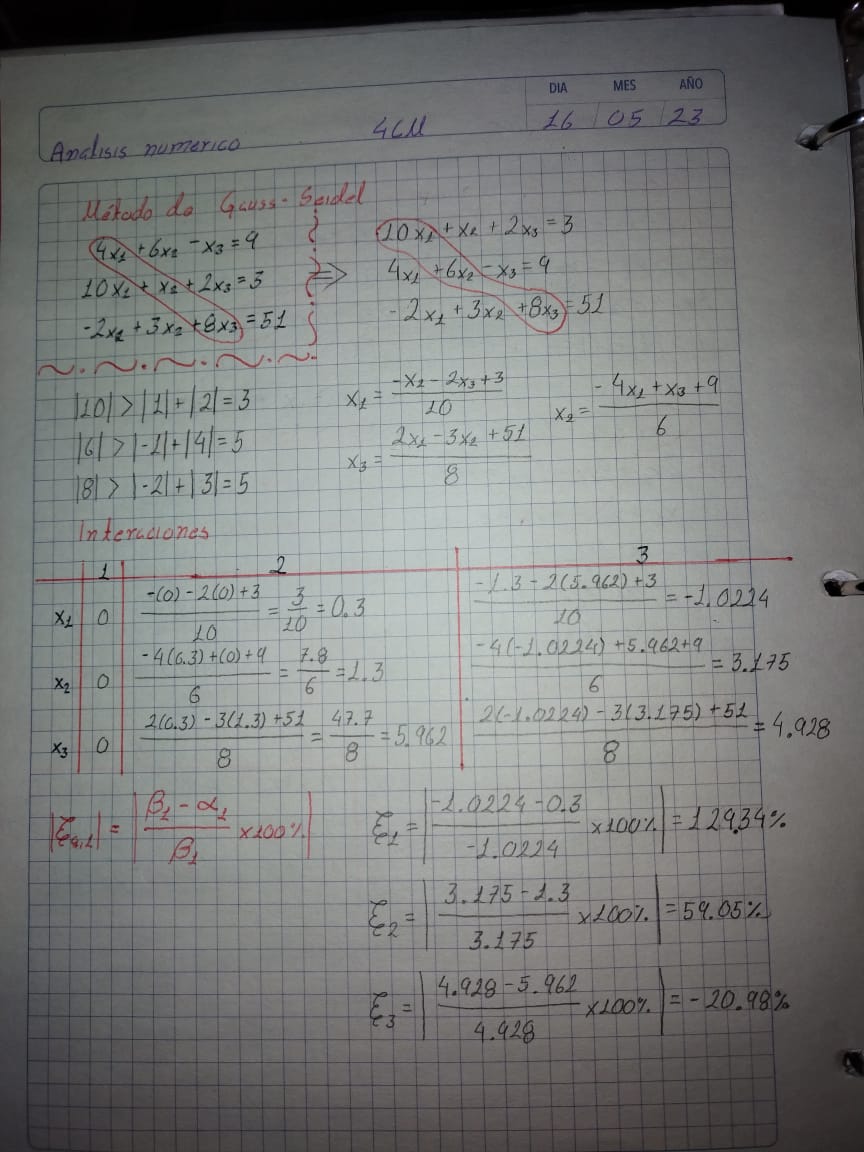 DIA MES AÑO
Analisis numerico 4CM 16 05 23
Método de Gauss-Seidel
4x₁ + 6x₂ - x₃ = 9
10x₁ + x₂ + 2x₃ = 3
-2x₁ + 3x₂ + 8x₃ = 51
⇒
10x₁ + x₂ + 2x₃ = 3
4x₁ + 6x₂ - x₃ = 9
-2x₁ + 3x₂ + 8x₃ = 51
|10| > |1| + |2| = 3
|6| > |-1| + |4| = 5
|8| > |-2| + |3| = 5
x₁ = (-x₂ - 2x₃ + 3)/10
x₂ = (-4x₁ + x₃ + 9)/6
x₃ = (2x₁ - 3x₂ + 51)/8
Interaciones
1 2 3
x₁ 0 (-(0) - 2(0) + 3)/10 = 3/10 = 0.3 (-1.3 - 2(5.962) + 3)/10 = -1.0224
x₂ 0 (-4(0.3) + (0) + 9)/6 = 7.8/6 = 1.3 (-4(-1.0224) + 5.962 + 9)/6 = 3.175
x₃ 0 (2(0.3) - 3(1.3) + 51)/8 = 47.7/8 = 5.962 (2(-1.0224) - 3(3.175) + 51)/8 = 4.928
|ξa,1| = |(β₁ - α₁)/β₁ x100%|
ξ₁ = |(-1.0224 - 0.3)/-1.0224 x100%| = 129.34%
ξ₂ = |(3.175 - 1.3)/3.175 x100%| = 59.05%
ξ₃ = |(4.928 - 5.962)/4.928 x100%| = -20.98%